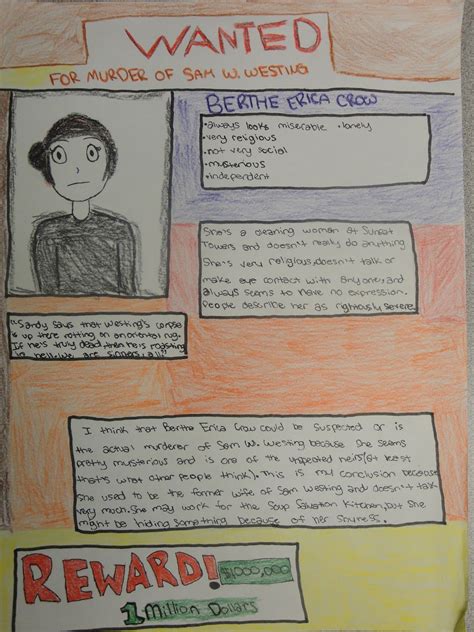 WANTED
FOR MURDER OF SAM W. WESTING
BERTHE ERICA CROW
•always looks miserable •lonely
•very religious
•not very social
•mysterious
•independent
She's a cleaning woman at Sunset
Towers and doesn't really do anything
She's very religious, doesn't talk or
make eye contact with anyone, and
always seems to have no expression.
People describe her as righously severe
"Sandy says that Westing's corpse
is up there rotting on an oriental rug.
If he's truly dead, then he is roasting
in hell. We are sinners, all"
I think that Berthe Erica Crow could be suspected or is
the actual murderer of Sam W. Westing because she seems
pretty mysterious and is one of the heirs (at least
that's what other people think). This is my conclusion because
she used to be the former wife of Sam Westing and doesn't talk
very much. She may work for the Soup Salvation Kitchen, but she
might be hiding something because of her shyness.
REWARD! $1000,000
1 Million Dollars